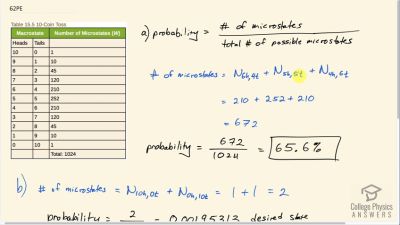 62PE
Table 15.5 10-Coin Toss
Macrostate Number of Microstates (W)
Heads Tails
10 0 1
9 1 10
8 2 45
7 3 120
6 4 210
5 5 252
4 6 210
3 7 120
2 8 45
1 9 10
0 10 1
Total: 1024
a) probability = # of microstates / total # of possible microstates
# of microstates = N6h,4t + N5h,5t + N4h,6t
= 210 + 252 + 210
= 672
probability = 672 / 1024 = 65.6%
b) # of microstates = N10h,0t + N0h,10t = 1 + 1 = 2
probability = 2 = 0.00195312 desired state
College Physics
ANSWERS